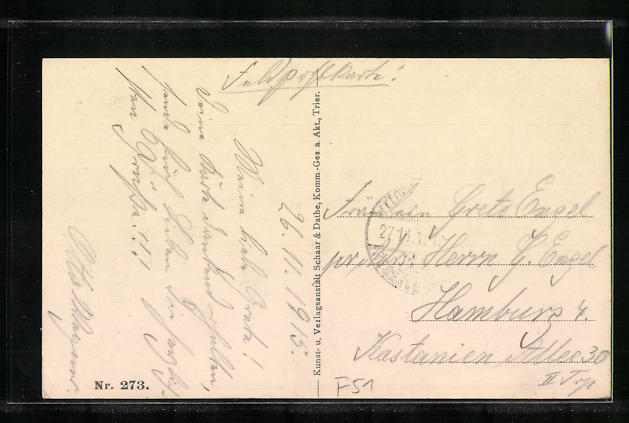 Feldpostkarte!
26.11.1915.
Meine liebe Grete!
Deine Karte dankend erhalten,
sende Dir lieben
Grüße!!!
Otto
Kunst- u. Verlagsanstalt Schaar & Dathe, Komm.-Ges a. Akt., Trier.
27.11.
Fräulein Grete Engel
pr. Adr. Herrn C. Engel
Hamburg 4.
Kastanien Allee 30
II Trp
Nr. 273.
F51